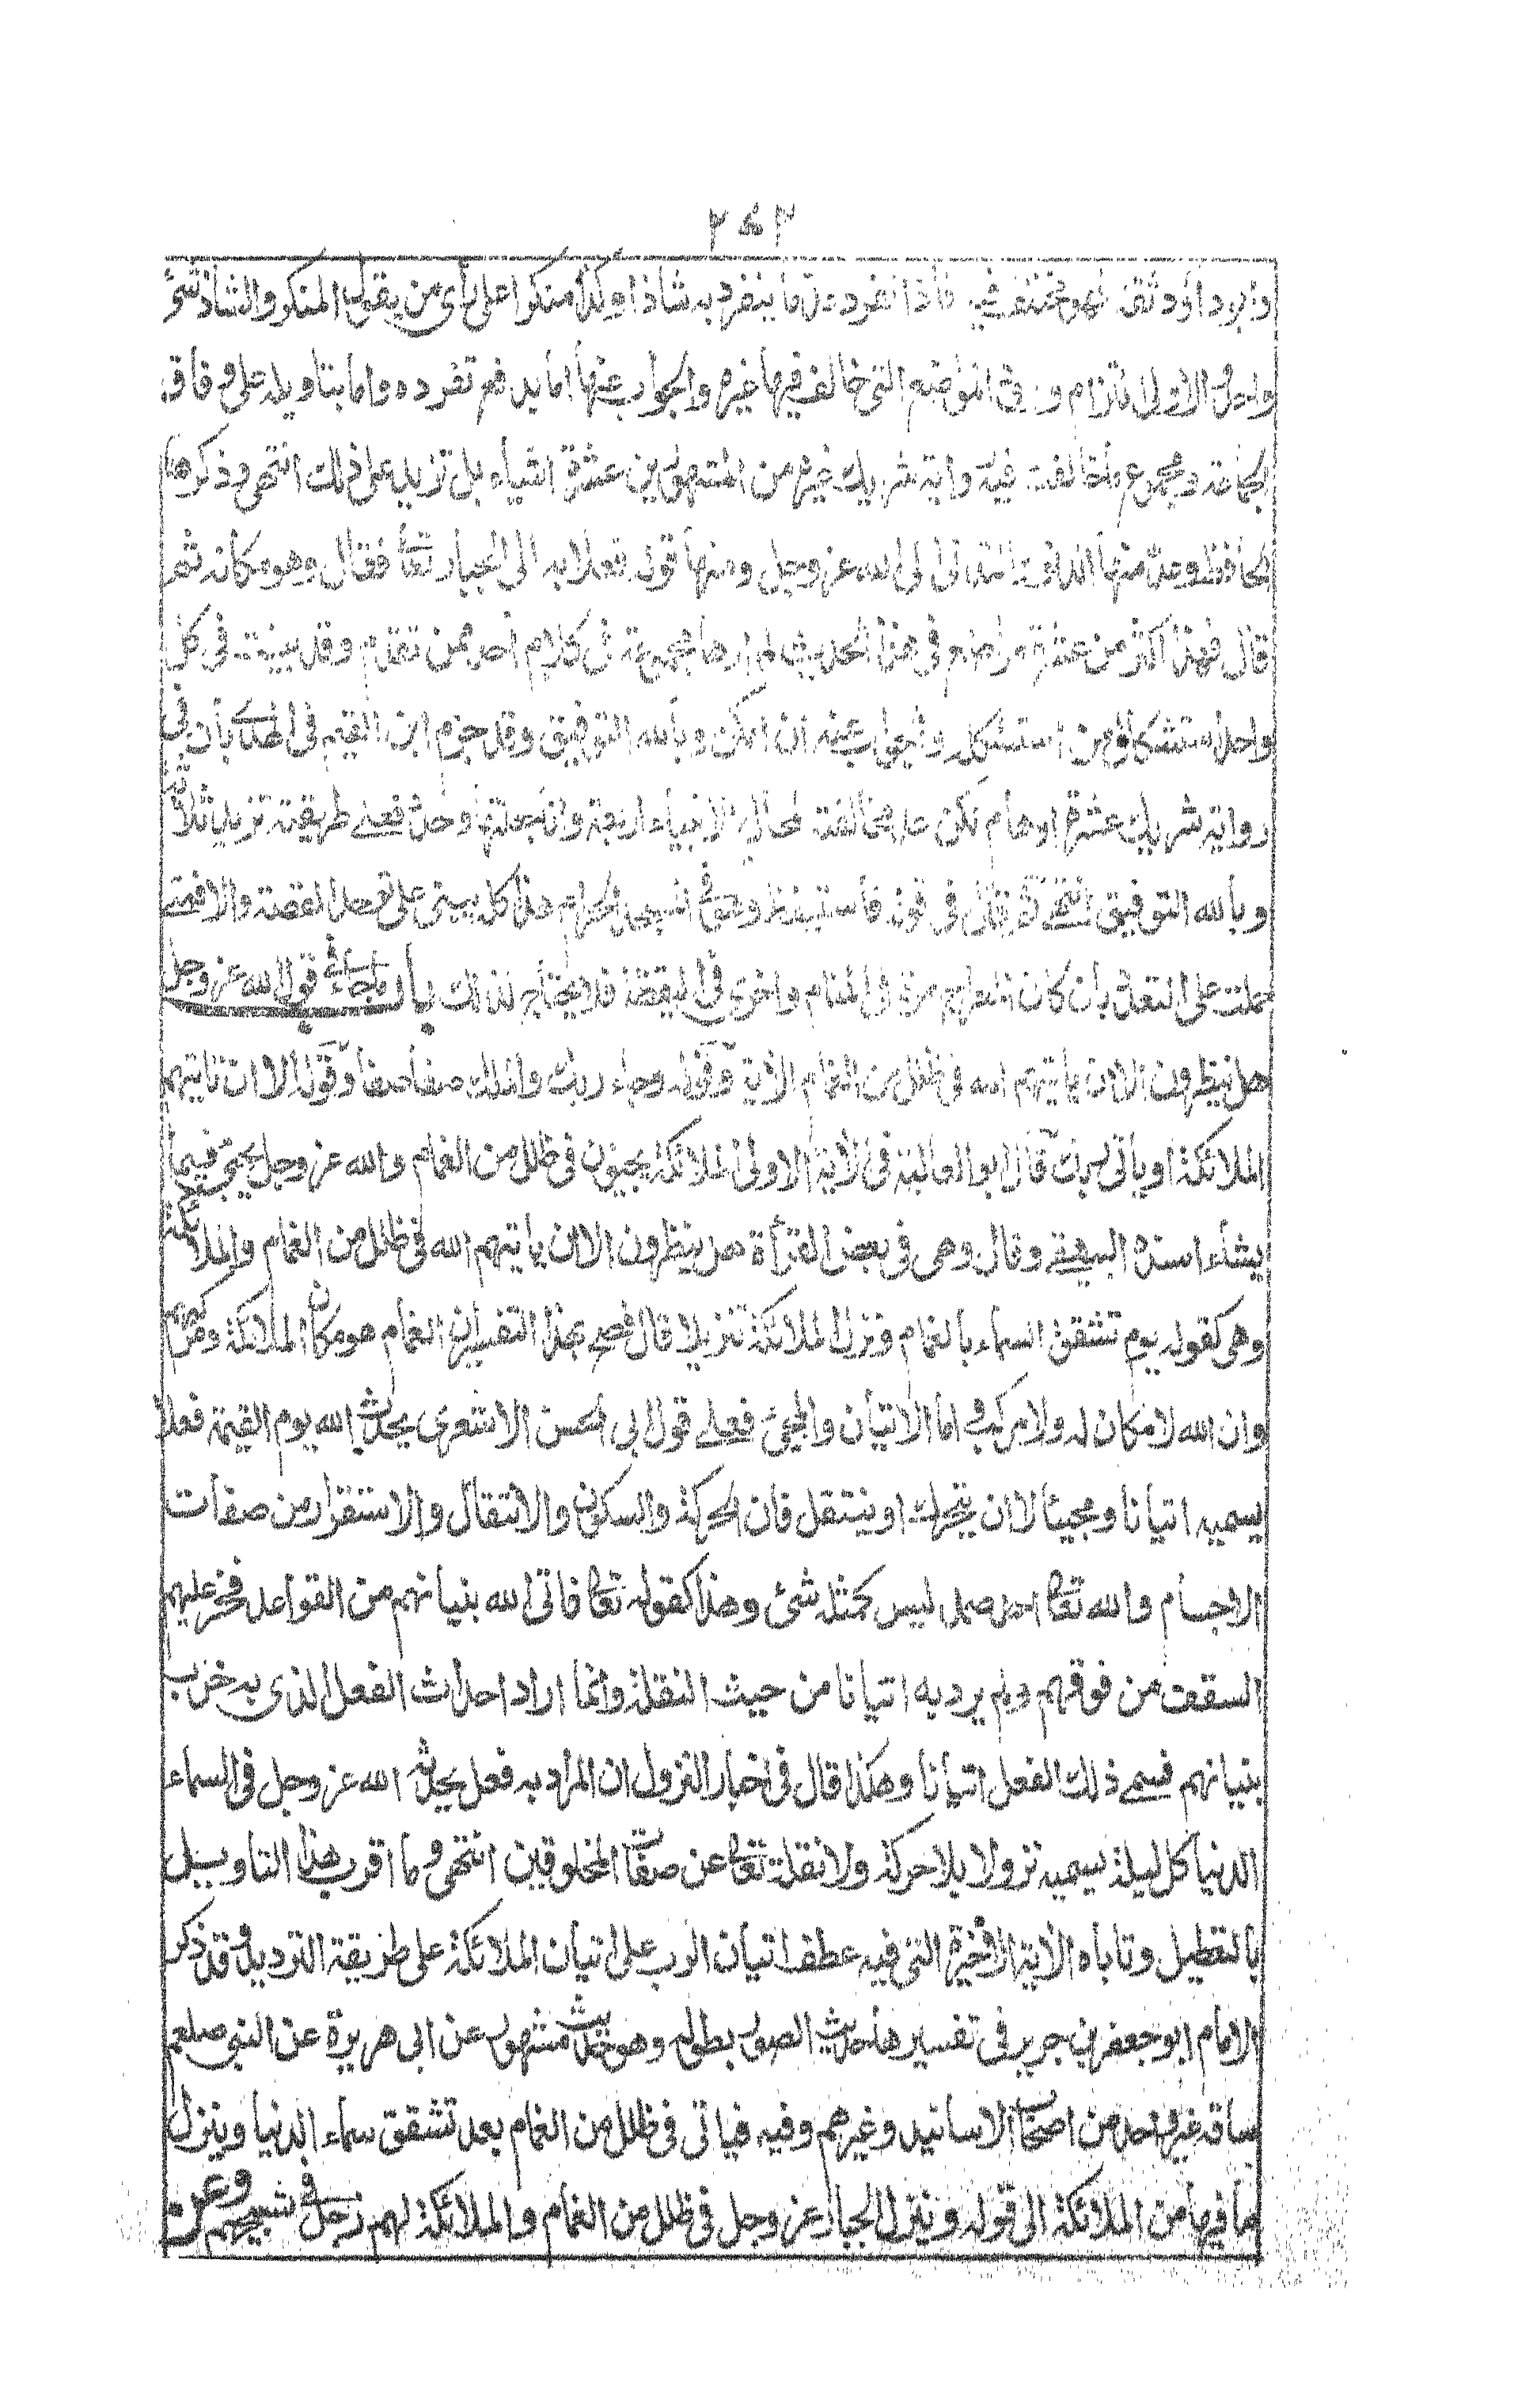 ٢٤٣
داود ثقة فهو مختلف فيه فاذا تفرد عد ما ينفرد به شاذا وكذا منكرا على رأى من يقول المنكر والشاذ شئ
واحد الاولى التزام ورود المواضع التى خالف فيها غيره والجواب عنها اما بدفع تفرده واما بتاويله على وفاق
الجماعة ومجموع ما خالفت فيه رواية شريك غيره من المشهورين عشرة اشياء بل تزيد على ذلك انتهى وذكرها
الحافظ وعد منها الى الله عز وجل ومنها قوله فعلا به الى الجبار تعالى فقال وهو مكانه ثم
قال فهذه اكثر من عشرة مواضع فى هذا الحديث لم ارها مجموعة فى كلام احد ممن تقدم وقد بينت فى كل
واحد استشكال من استشكله والجواب عنه ان امكن وبالله التوفيق وقد جزم ابن القيم فى الهدى بأن فى
رواية شريك عشرة اوهام لكن عد مخالفته لمحال الانبياء اربعة وانا جعلتها وحدة فعلى طريقته تزيد ثلاثة
وبالله التوفيق انتهى ثم قال فى قوله فاستيقظ وهو فى المسجد الحرام هذا كله يبنى على توحد القصة والافمتى
حملت على التعدد بأن كان المعراج مرة فى المنام واخرى فى اليقظة فلا يحتاج لذلك باب ماجاء فى قول الله عز وجل
هل ينظرون الا ان يأتيهم الله فى ظلل من الغمام الآية وقوله وجاء ربك والملك صفا صفا وقوله الا ان تاتيهم
الملائكة او ياتى ربك قال ابو العالية فى الآية الاولى الملائكة يجيؤن فى ظلل من الغمام والله عز وجل يجئ فيما
يشاء اسنده البيهقى وقال وهى فى بعض القرأة هل ينظرون الا ان يأتيهم الله فى ظلل من الغمام والملائكة
وهى كقوله يوم تشقق السماء بالغمام ونزل الملائكة تنزيلا قال فصح بهذا التفسير ان الغمام هو مكان الملائكة ومركبهم
وان الله لا مكان له ولا مركب اما الاتيان والمجئ فعلى قول ابى الحسن الاشعرى يحدث الله يوم القيمة فعلا
يسميه اتيانا ومجيئا لا ان يتحرك او ينتقل فان الحركة والسكون والانتقال والاستقرار من صفات
الاجسام والله تعالى احد صمد ليس كمثله شئ وهذا كقوله تعالى فاتى الله بنيانهم من القواعد فخر عليهم
السقف من فوقهم ولم يرد به اتيانا من حيث النقلة وانما اراد احداث الفعل الذى به خرب
بنيانهم فسمى ذلك الفعل اتيانا وهكذا قال فى اخبار النزول ان المراد به فعل يحدثه الله عز وجل فى السماء
الدنيا كل ليلة يسميه نزولا بلا حركة ولا نقلة تعالى عن صفات المخلوقين انتهى وما اقرب هذا التاويل
بالتعطيل وتاباه الآية الاخيرة التى فيه عطف اتيان الرب على اتيان الملائكة على طريقة الترديد وقد ذكر
الامام ابو جعفر بن جرير فى تفسير هذا حديث الصور بطوله وهو حديث مشهور عن ابى هريرة عن النبى صلعم
ساقه غير واحد من اصحاب الاسانيد وغيرهم وفيه فياتى فى ظلل من الغمام بعد تشقق سماء الدنيا وينزل
ما فيها من الملائكة الى قوله وينزل الجبار عز وجل فى ظلل من الغمام والملائكة لهم زجل فى تسبيحهم وعن